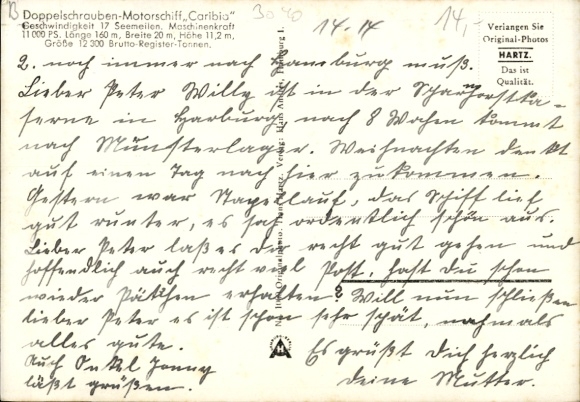 B
30 40
14.14
14,-
Doppelschrauben-Motorschiff „Caribia"
Geschwindigkeit 17 Seemeilen. Maschinenkraft
11 000 PS. Länge 160 m, Breite 20 m, Höhe 11,2 m,
Größe 12 300 Brutto-Register-Tonnen.
Verlangen Sie
Original-Photos
HARTZ.
Das ist
Qualität.
2. noch immer nach Hamburg muß.
Lieber Peter Willy ist in der Scharnhorstka-
serne in Harburg, nach 8 Wochen kommt
nach Münsterlager. Weihnachten denkt
auf einen Tag nach hier zu kommen.
Gestern war Stapellauf, das Schiff lief
gut runter, es sah ordentlich schön aus.
Lieber Peter laß es dir recht gut gehen und
hoffendlich auch recht viel Post, hast Du schon
wieder Päckchen erhalten? Will nun schließen
lieber Peter es ist schon sehr spät, nochmals
alles gute.
Auch Onkel Jonny
läßt grüßen.
Es grüßt Dich herzlich
deine Mutter.